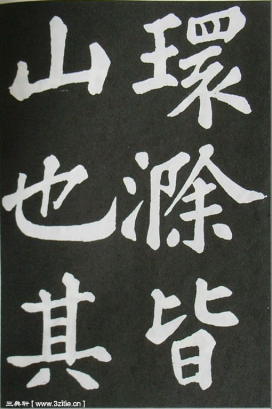 環滁皆
山也其
三典轩 [ www.3zitie.cn ]